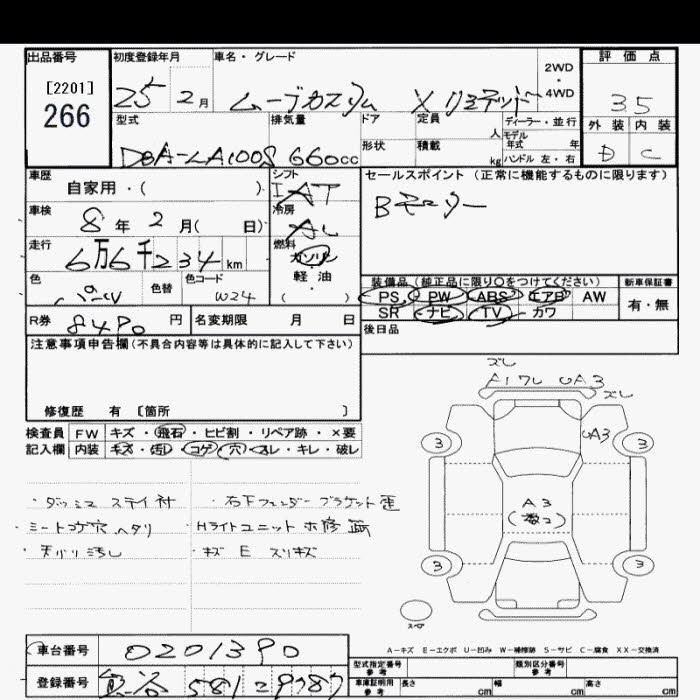 出品番号 初度登録年月 車名・グレード 2WD・4WD 評価点
[2201]
266
25 2月 ムーブカスタム X リミテッド 3.5
型式 排気量 ドア 定員 人 ディーラー・並行 外装 内装
モデル年式 年
DBA-LA100S 660cc 形状 積載 kg ハンドル 左・右 D C
車歴 シフト セールスポイント(正常に機能するものに限ります)
自家用・( ) IAT
Bモニター
車検 冷房
8年2月( 日) AC
走行 燃料
6万6千234km ガソリン
軽油
( )
色 色替 色コード 装備品(純正品に限り○をつけてください) 新車保証書
パール W24 PS PW ABS エアB AW 有・無
SR ナビ TV カワ
R券 8490円 名変期限 月 日 後日品
注意事項申告欄(不具合内容等は具体的に記入して下さい)
修復歴 有 [箇所 ]
検査員 FW キズ・飛石・ヒビ割・リペア跡・×要
記入欄 内装 キズ・汚レ・コゲ・穴・スレ・キレ・破レ
ズレ
A1ワレ UA3
ズレ
3 UA3 3
A3
3 3
スペア
・ダッシュ ステイ付 ・右下フェンダーブラケット歪
・シートコゲ穴 ヘタリ ・Hライトユニット ホ修跡
・天バリ汚レ ・キズ E スリキズ
A-キズ E-エクボ U-凹み W-補修跡 S-サビ C-腐食 XX-交換済
車台番号 0201390
型式指定番号 参考 類別区分番号 参考
登録番号 熊谷 581 29787
車庫証明用 参考 長さ cm 幅 cm 高さ cm